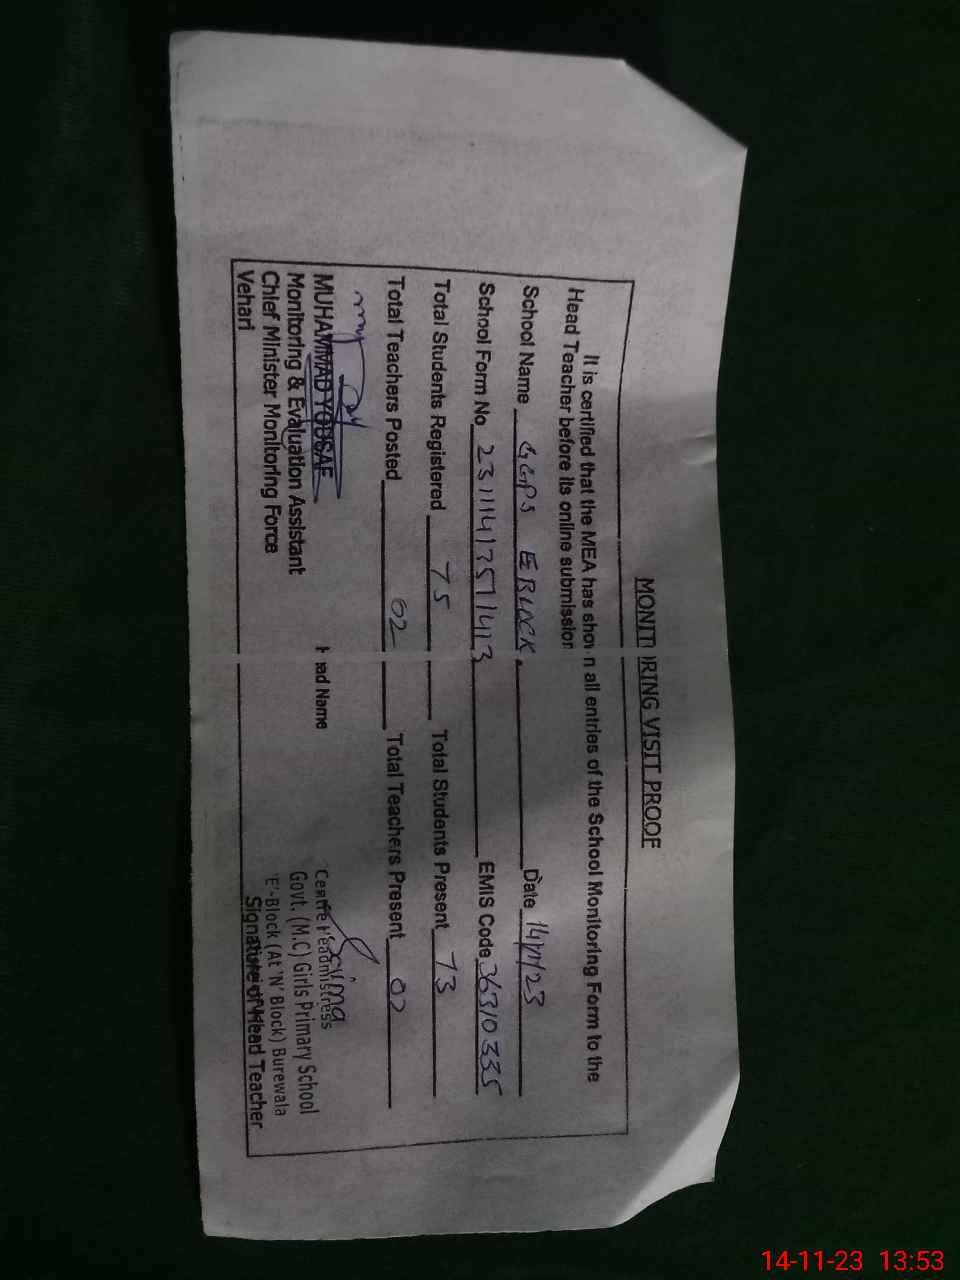 MONITORING VISIT PROOF
It is certified that the MEA has shown all entries of the School Monitoring Form to the
Head Teacher before its online submission
School Name GGPS E BLOCK. Date 14/11/23
School Form No 23111413571413 EMIS Code 36310335
Total Students Registered 75 Total Students Present 73
Total Teachers Posted 02 Total Teachers Present 02
MUHAMMAD YOUSAF
Monitoring & Evaluation Assistant
Chief Minister Monitoring Force
Vehari
Head Name
Centre Headmistress
Govt. (M.C) Girls Primary School
'E'-Block (At 'N' Block) Burewala
Signature of Head Teacher
14-11-23 13:53